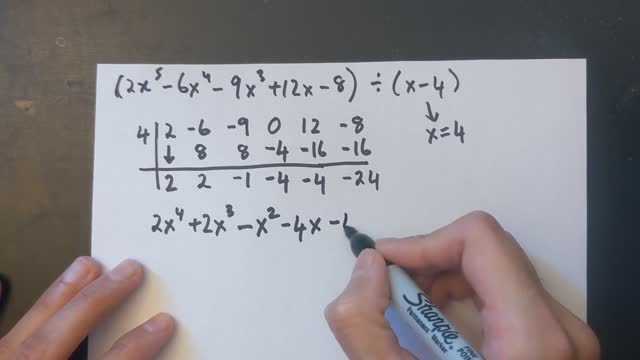 (2x⁵ - 6x⁴ - 9x³ + 12x - 8) ÷ (x - 4)
↓
x = 4
4 | 2 -6 -9 0 12 -8
↓ 8 8 -4 -16 -16
2 2 -1 -4 -4 -24
2x⁴ + 2x³ - x² - 4x -
Sharpie